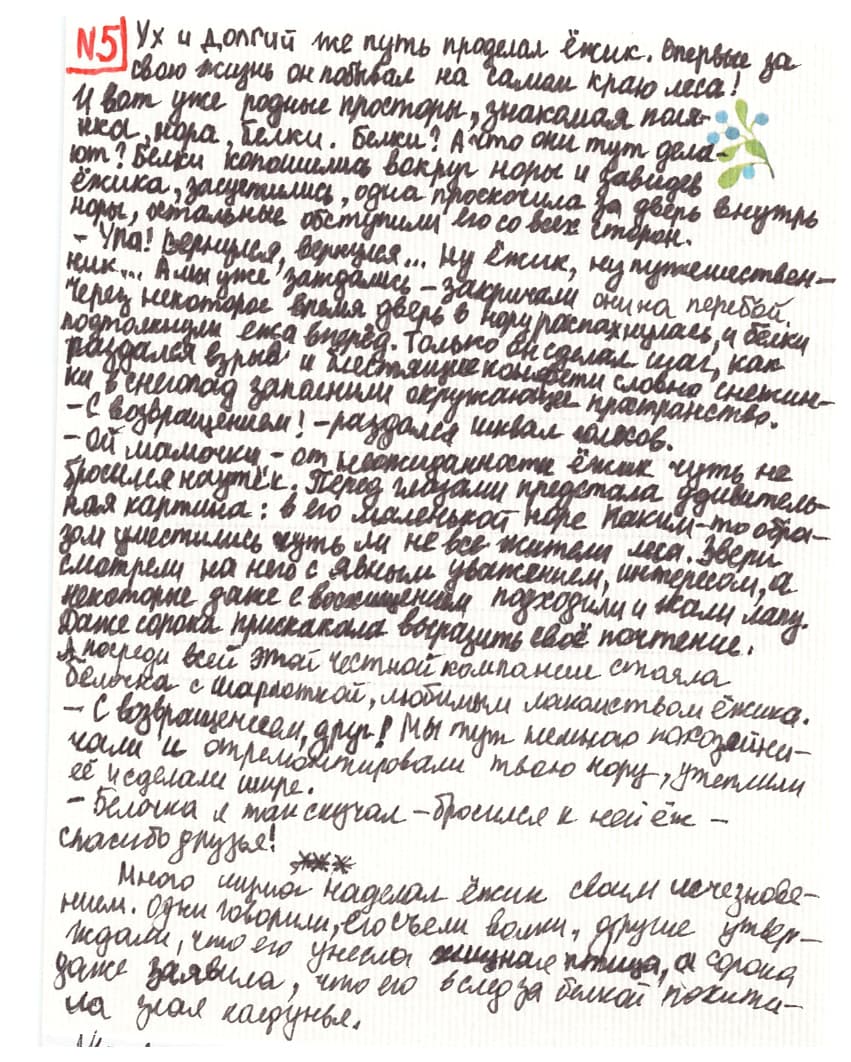 N5 Ух и долгий же путь проделал ёжик. Впервые за
свою жизнь он побывал на самом краю леса!
И вот уже родные просторы, знакомая поля-
нка, нора, белки. Белки? А что они тут дела-
ют? Белки копошились вокруг норы и завидев
ёжика, засуетились, одна проскочила за дверь внутрь
норы, остальные обступили его со всех сторон.
- Ура! Вернулся, вернулся... ну ёжик, ну путешествен-
ник... А мы уже заждались - закричали они на перебой.
Через некоторое время дверь в нору распахнулась, и белки
подтолкнули ежа вперёд. Только он сделал шаг, как
раздался взрыв и блестящие конфети словно снежин-
ки в снегопад запаснили окружающее пространство.
- С возвращением! - раздался шквал голосов.
- Ой мамочки - от неожиданности ёжик чуть не
бросился наутёк. Перед глазами предстала удивитель-
ная картина: в его маленькой норе каким-то обра-
зом уместились чуть ли не все жители леса. Звери
смотрели на него с явным уважением, интересом, а
некоторые даже с восхищением подходили и жали лапу.
Даже сорока прискакала выразить своё почтение.
А посреди всей этой честной компании стояла
белочка с шарлоткой, любимым лакомством ёжика.
- С возвращением, друг! Мы тут немного похозяйни-
чали и отремонтировали твою нору, утеплили
её и сделали шире.
- Белочка я так скучал - бросился к ней ёж -
спасибо друзья!
***
Много шума наделал ёжик своим исчезнове-
нием. Одни говорили, его съели волки, другие утвер-
ждали, что его унесла хищная птица, а сорока
даже заявила, что его вслед за белкой похити-
ла злая колдунья.